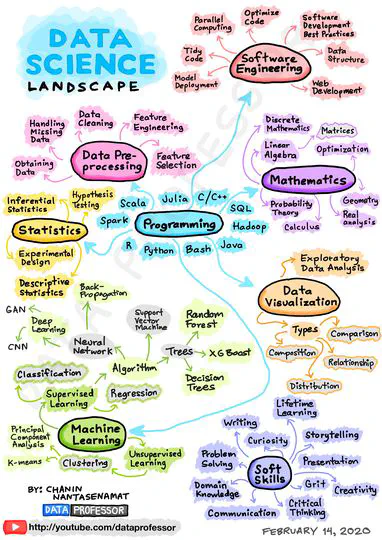 DATA
SCIENCE
LANDSCAPE
Parallel
Computing
Optimize
Code
Software
Development
Best Practices
Tidy
Code
Data
Structure
Software
Engineering
Model
Deployment
Web
Development
Handling
Missing
Data
Data
Cleaning
Feature
Engineering
Obtaining
Data
Data Pre-
processing
Feature
Selection
Discrete
Mathematics
Matrices
Linear
Algebra
Optimization
Mathematics
Probability
Theory
Geometry
Real
analysis
Calculus
Inferential
Statistics
Hypothesis
Testing
Statistics
Experimental
Design
Descriptive
Statistics
Scala
Julia
C/C++
SQL
Spark
Programming
Hadoop
R
Python
Bash
Java
Exploratory
Data Analysis
Data
Visualization
Types
Comparison
Composition
Relationship
Distribution
GAN
Back-
Propagation
Deep
Learning
CNN
Neural
Network
Support
Vector
Machine
Random
Forest
Algorithm
Trees
XG Boost
Decision
Trees
Classification
Regression
Supervised
Learning
Principal
Component
Analysis
Machine
Learning
K-means
Clustering
Unsupervised
Learning
Lifetime
Learning
Writing
Curiosity
Storytelling
Problem
Solving
Soft
Skills
Presentation
Domain
Knowledge
Grit
Creativity
Communication
Critical
Thinking
BY: CHANIN
NANTASENAMAT
DATA PROFESSOR
http://youtube.com/dataprofessor
FEBRUARY 14, 2020